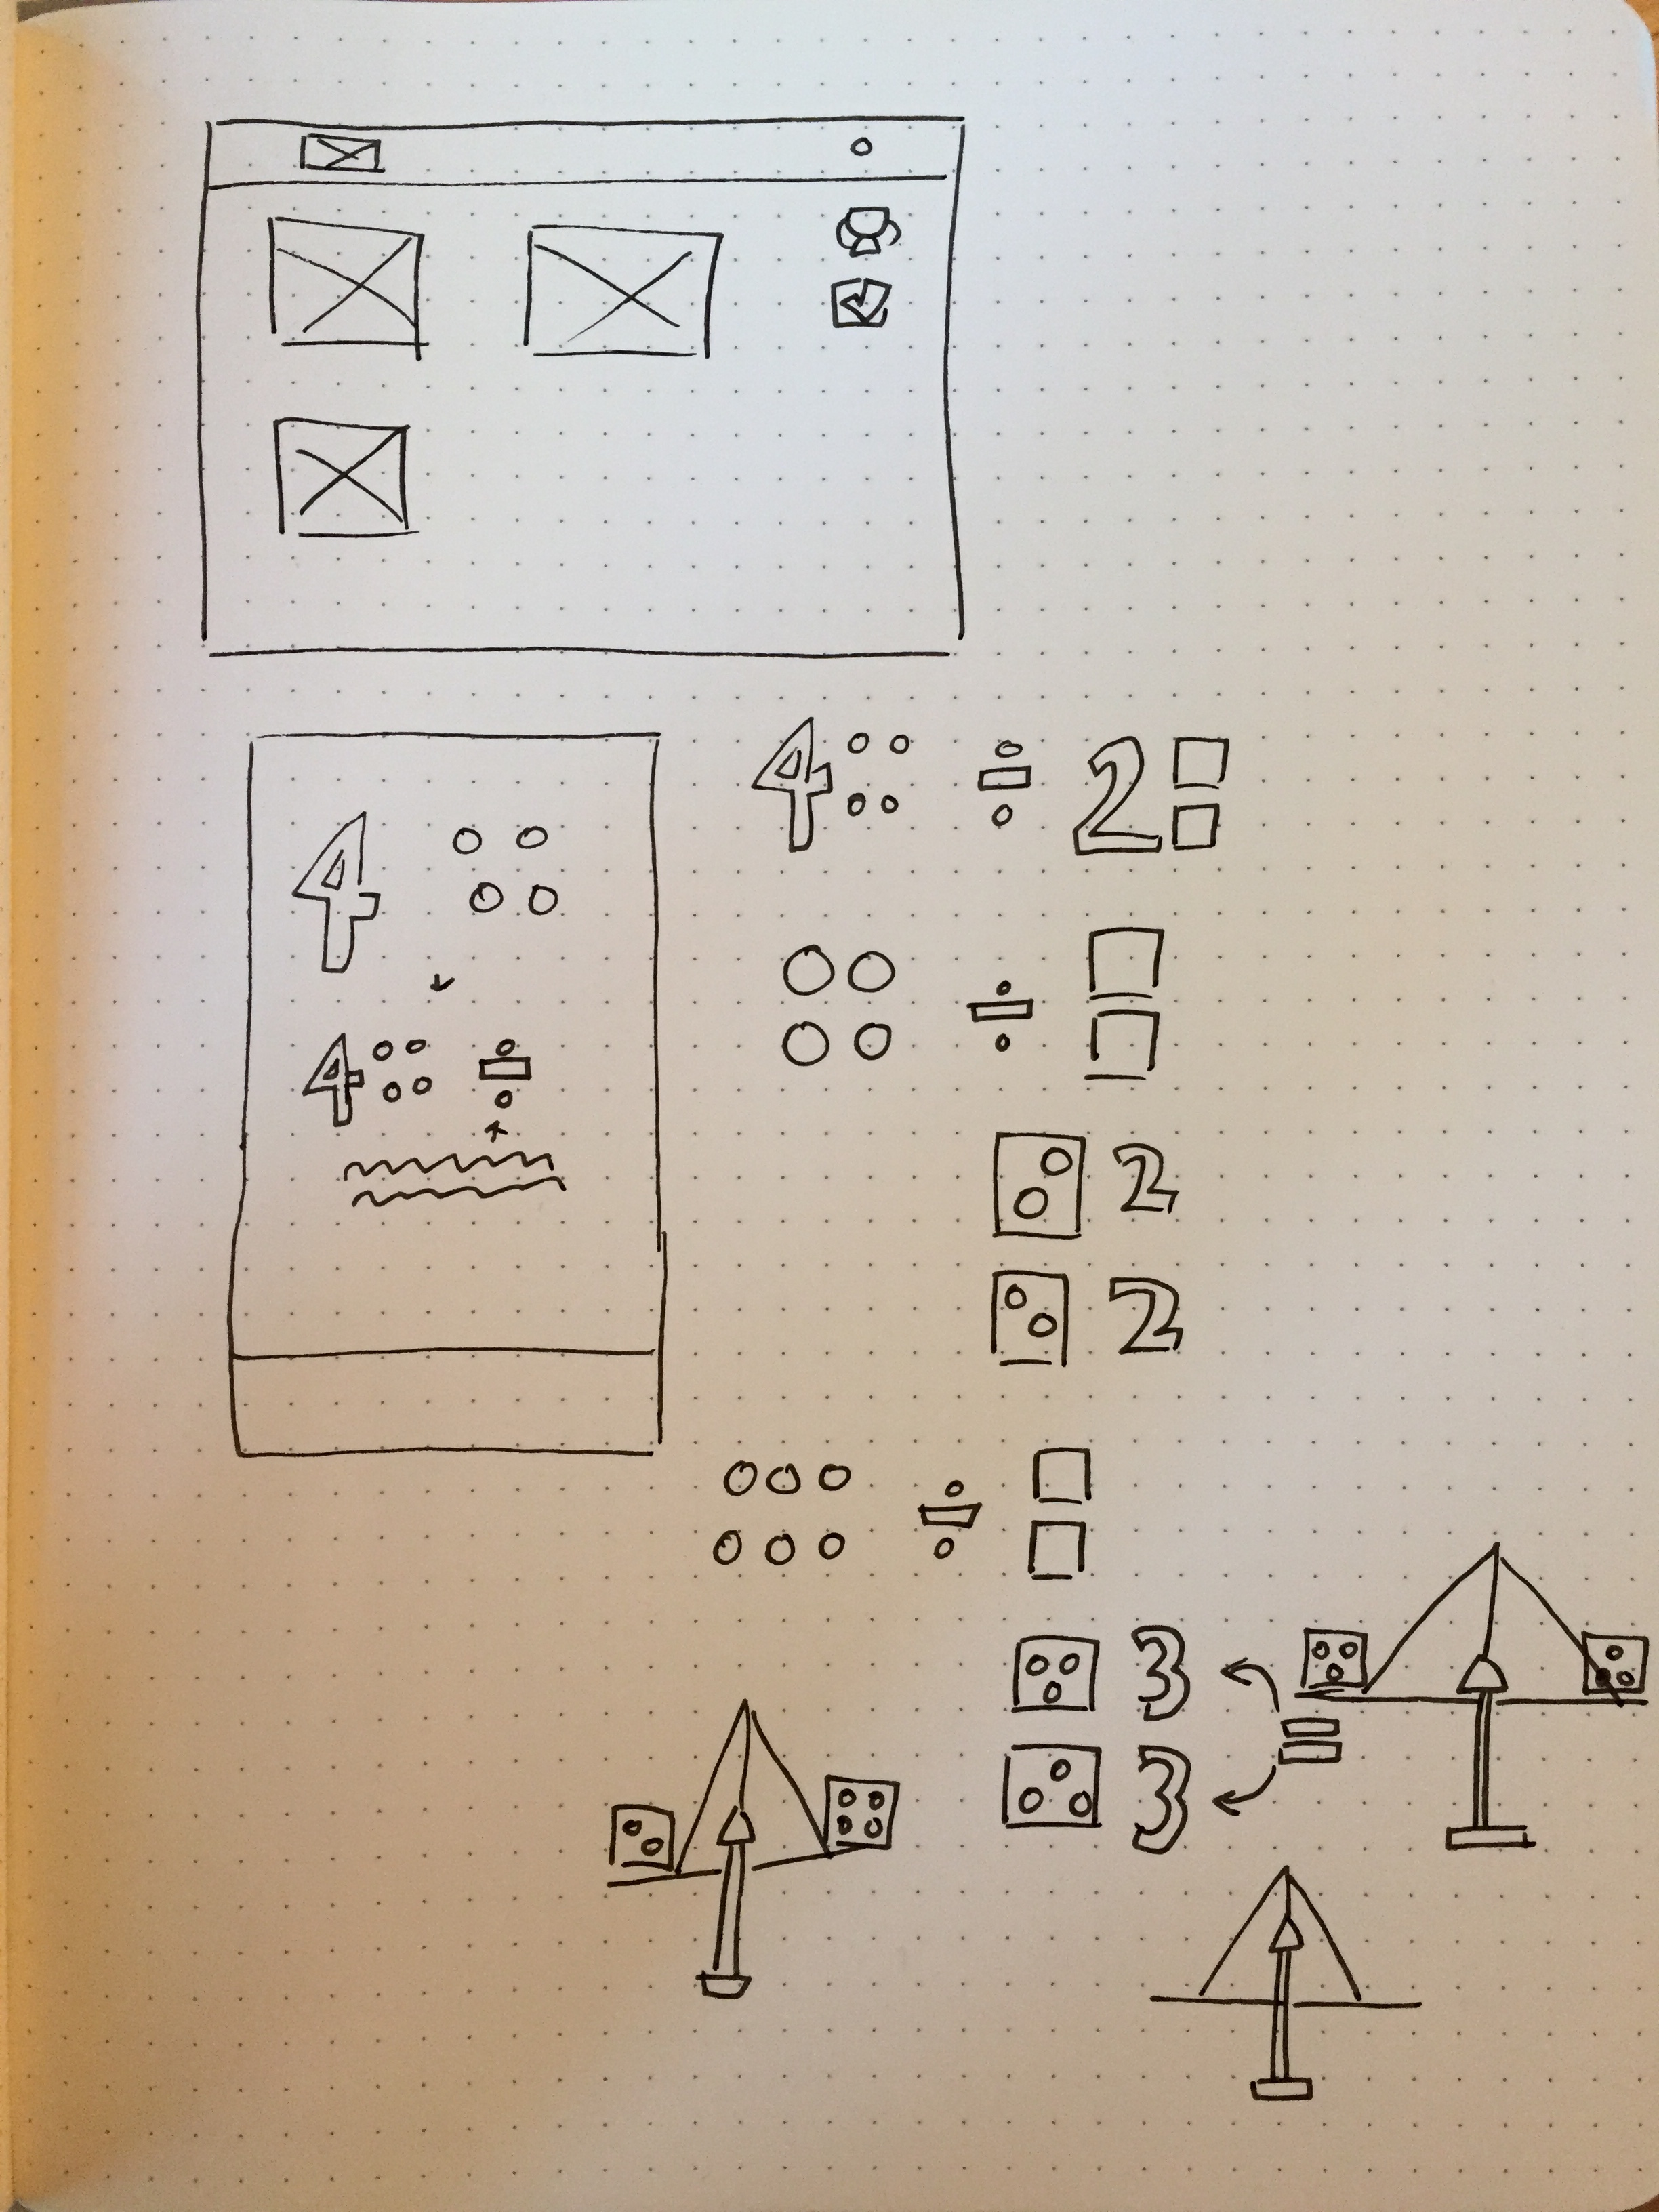 4
4 ÷
4 ÷ 2
÷
2
2
÷
3
3
=